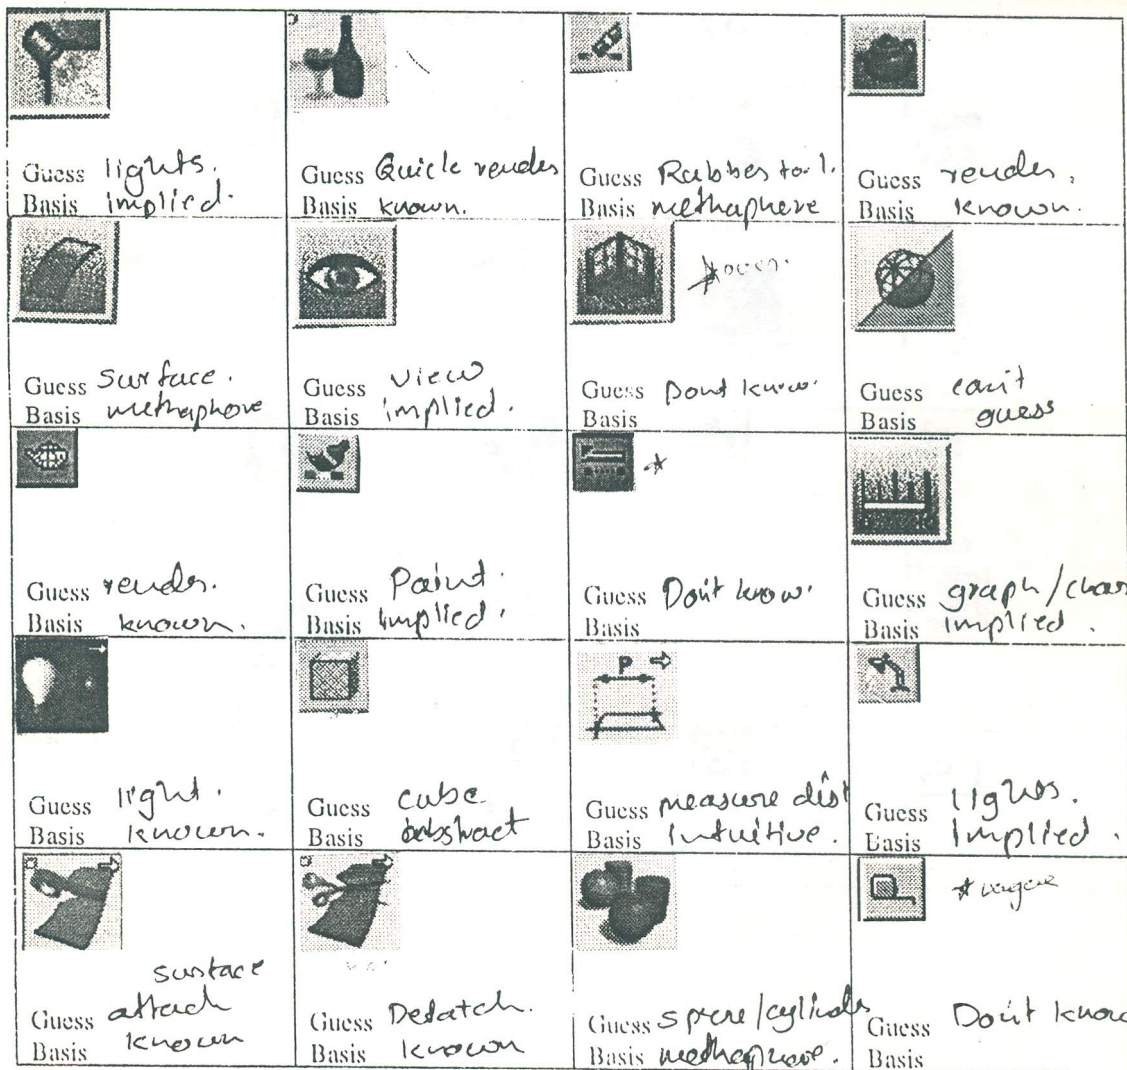 Guess lights.
Basis implied.
Guess Quick render
Basis known.
Guess Rubber tool.
Basis methaphere
Guess render.
Basis known.
Guess surface.
Basis methaphore
Guess view
Basis implied.
Guess Dont know.
Basis
Guess can't
Basis guess
Guess render.
Basis known.
Guess Paint.
Basis implied.
Guess Don't know.
Basis
Guess graph/char
Basis implied.
Guess light.
Basis known.
Guess cube
Basis abstract
P
Guess measure dist
Basis Intuitive.
Guess lights.
Basis implied.
surface
Guess attach
Basis known
Guess Detatch.
Basis known
Guess sphere/cylinder
Basis methaphore.
* vague
Guess Don't know
Basis